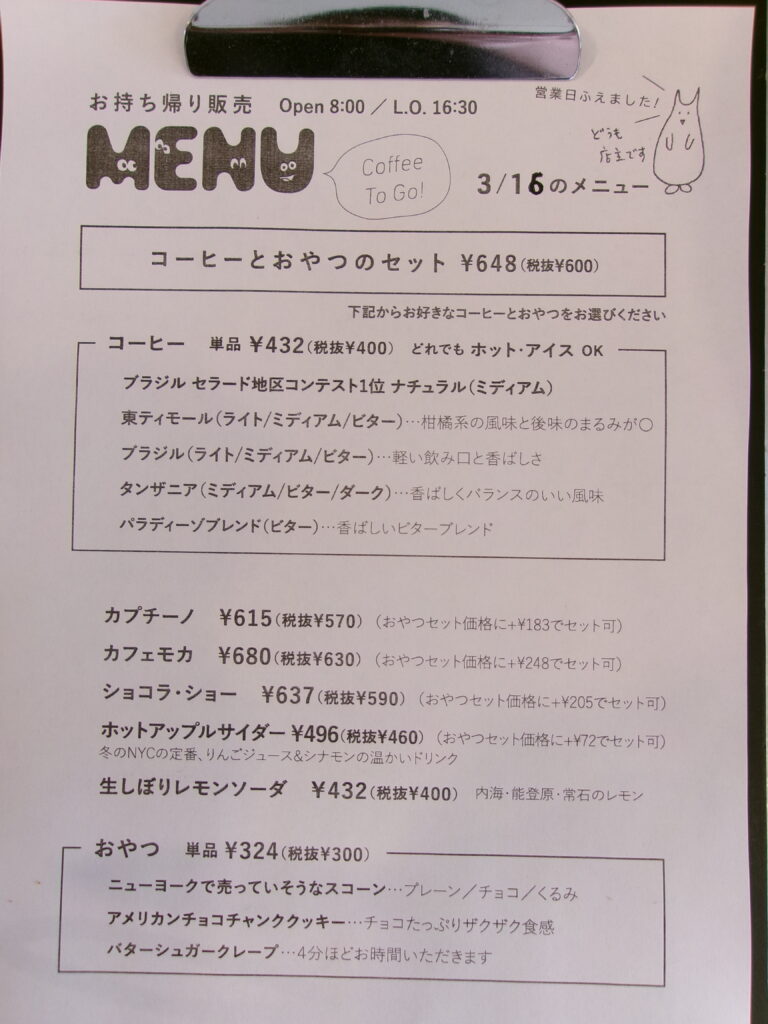 お持ち帰り販売 Open 8:00 / L.O. 16:30
営業日ふえました!
どうも
店主です
MENU
Coffee
To Go!
3/16のメニュー
コーヒーとおやつのセット ¥648(税抜¥600)
下記からお好きなコーヒーとおやつをお選びください
コーヒー 単品 ¥432(税抜¥400) どれでも ホット・アイス OK
ブラジル セラード地区コンテスト1位 ナチュラル(ミディアム)
東ティモール(ライト/ミディアム/ビター)…柑橘系の風味と後味のまるみが〇
ブラジル(ライト/ミディアム/ビター)…軽い飲み口と香ばしさ
タンザニア(ミディアム/ビター/ダーク)…香ばしくバランスのいい風味
パラディーゾブレンド(ビター)…香ばしいビターブレンド
カプチーノ ¥615(税抜¥570) (おやつセット価格に+¥183でセット可)
カフェモカ ¥680(税抜¥630) (おやつセット価格に+¥248でセット可)
ショコラ・ショー ¥637(税抜¥590) (おやつセット価格に+¥205でセット可)
ホットアップルサイダー ¥496(税抜¥460) (おやつセット価格に+¥72でセット可)
冬のNYCの定番、りんごジュース&シナモンの温かいドリンク
生しぼりレモンソーダ ¥432(税抜¥400) 内海・能登原・常石のレモン
おやつ 単品 ¥324(税抜¥300)
ニューヨークで売っていそうなスコーン…プレーン/チョコ/くるみ
アメリカンチョコチャンククッキー…チョコたっぷりザクザク食感
バターシュガークレープ…4分ほどお時間いただきます